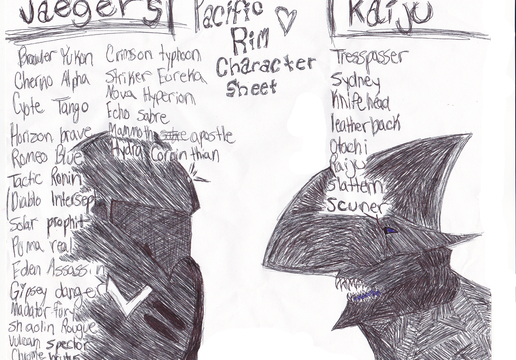 Jaegers
Brawler Yukon
Cherno Alpha
Cyote Tango
Horizon brave
Romeo Blue
Tactic Ronin
Diablo Intersept
Solar prophit
Puma real
Eden Assassin
Gipsey danger
Matador fury
Shaolin Rouque
Vulcan spector
Chrome brutus
Crimson typhoon
Striker Eureka
Nova Hyperion
Echo Sabre
Mammoth apostle
Hydra Corpinthian
Pacific
Rim
Character
Sheet
Kaiju
Tresspasser
Sydney
Knifehead
leatherback
Otachi
Raiju
Slattern
Scuner